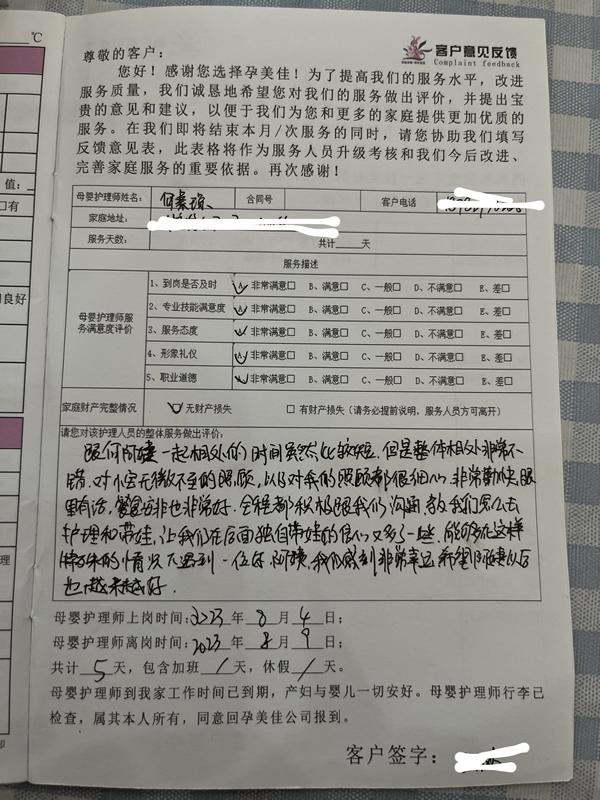 ℃
客户意见反馈
Complaint feedback
尊敬的客户：
您好！感谢您选择孕美佳！为了提高我们的服务水平，改进
服务质量，我们诚恳地希望您对我们的服务做出评价，并提出宝
贵的意见和建议，以便于我们为您和更多的家庭提供更加优质的
服务。在我们即将结束本月/次服务的同时，请您协助我们填写
反馈意见表，此表格将作为服务人员升级考核和我们今后改进、
完善家庭服务的重要依据。再次感谢！
母婴护理师姓名： 何 合同号 客户电话
家庭地址：
服务天数： 共计____天
服务描述
母婴护理师服务满意度评价
1、到岗是否及时 A、非常满意□ B、满意□ C、一般□ D、不满意□ E、差□
2、专业技能满意度 A、非常满意□ B、满意□ C、一般□ D、不满意□ E、差□
3、服务态度 A、非常满意□ B、满意□ C、一般□ D、不满意□ E、差□
4、形象礼仪 A、非常满意□ B、满意□ C、一般□ D、不满意□ E、差□
5、职业道德 A、非常满意□ B、满意□ C、一般□ D、不满意□ E、差□
家庭财产完整情况 无财产损失 □有财产损失（请务必提前说明，服务人员方可离开）
请您对该护理人员的整体服务做出评价：
跟何阿姨一起相处的时间虽然比较短，但是整体相处非常不
错，对小宝无微不至的照顾，以及对我的照顾都很细心，非常勤快，眼
里有活，餐食安排也非常好，全程都积极跟我们沟通，教我们怎么去
护理和带娃，让我们在后面独自带娃的信心又多了一些，能够在这样
特殊的情况下遇到一位好阿姨，我们感到非常幸运，希望阿姨以后
也越来越好。
母婴护理师上岗时间：2023年8月4日；
母婴护理师离岗时间：2023年8月9日；
共计5天，包含加班/天，休假/天。
母婴护理师到我家工作时间已到期，产妇与婴儿一切安好。母婴护理师行李已
检查，属其本人所有，同意回孕美佳公司报到。
客户签字：